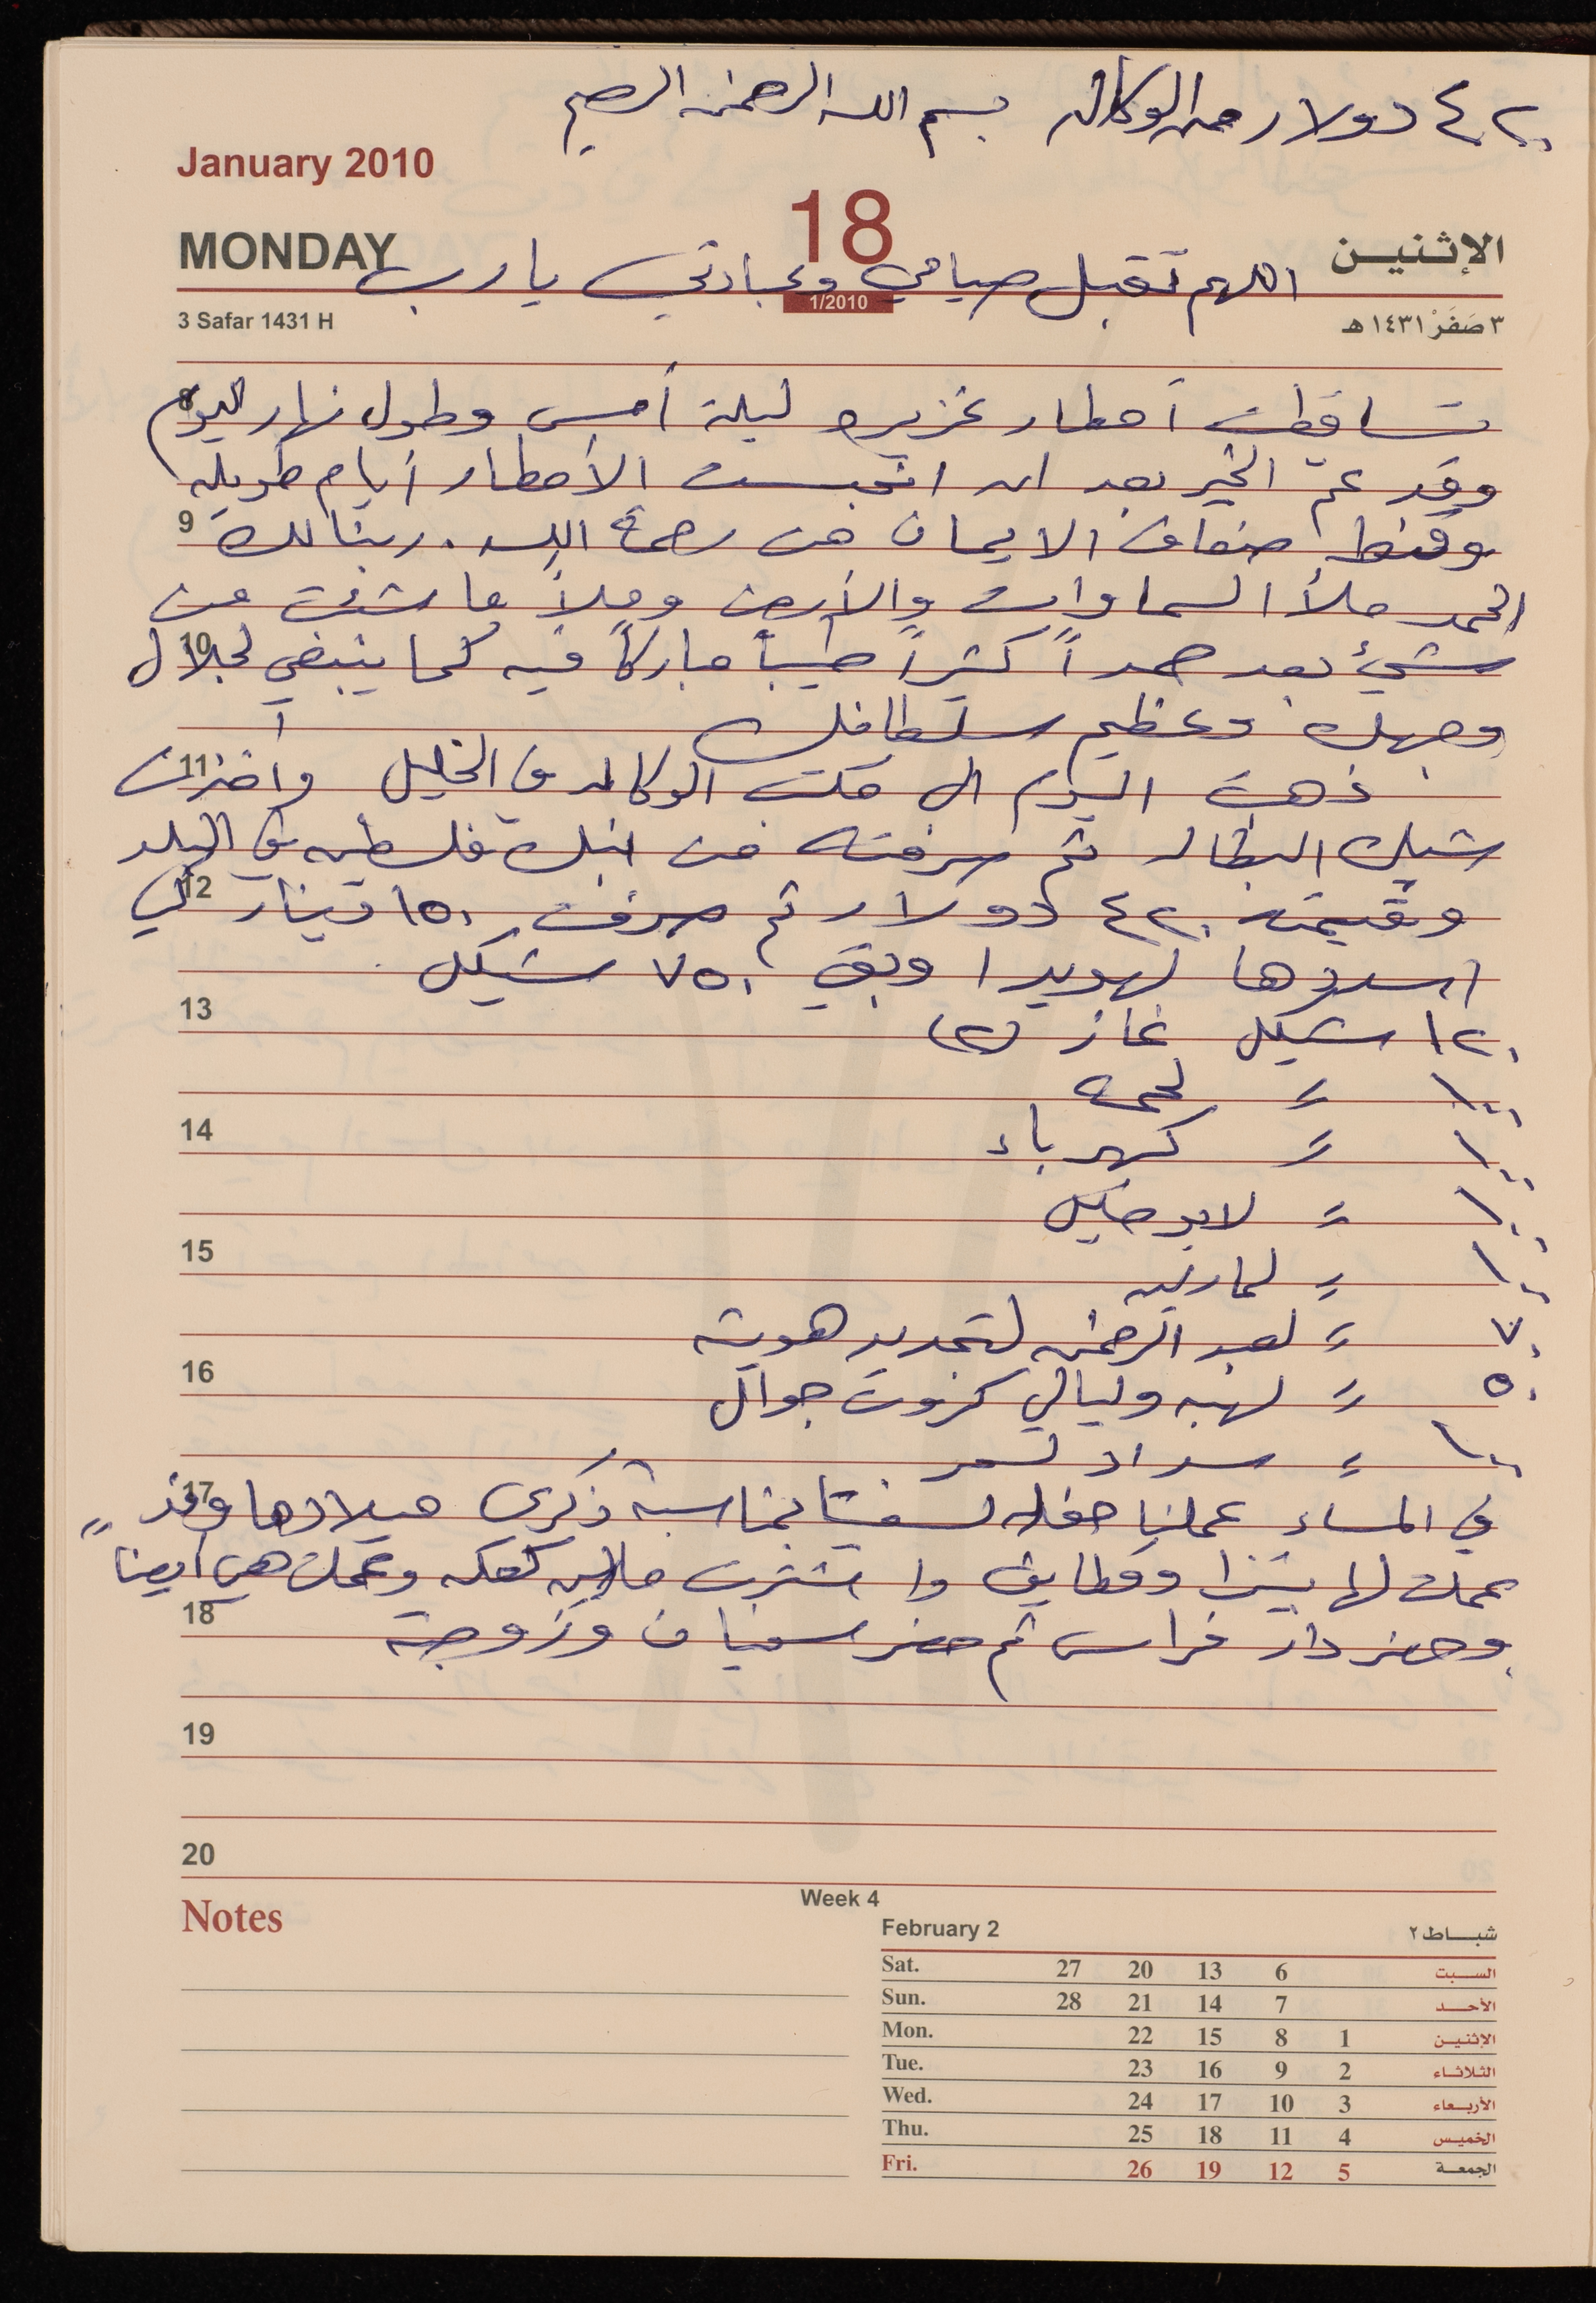 ٤٢٠ دولار من الوكاله بسم الله الرحمن الرحيم
January 2010
18
MONDAY الإثنين
اللهم تقبل صيامي وعبادتي يا رب
1/2010
3 Safar 1431 H ٣ صَفَرْ ١٤٣١ هـ
تساقطت أمطار غزيره ليلة أمس وطول نهار اليوم
8
وقد عمّ الخير بعد ان انحبست الأمطار أيام طويله
وقنط ضعاف الايمان من رحمة الله . ربنا لك
9
الحمد ملأ السماوات والأرض وملأ ما شئت من
شيء بعد حمداً كثيراً طيباً مباركاً فيه كما ينبغي لجلال
10
وجهك وعظيم سلطانك
ذهبت اليوم الى مكتب الوكاله في الخليل وأخذت
11
شيك البطاله ثم صرفته من بنك فلسطين في البلد
وقيمته ٤٢٠ دولار ثم صرفت ١٥٠ دينار لكي
12
اسددها لهويدا وبقي ٧٥٠ شيكل
13
١٢٠ شيكل غاز (٢)
١٠٠ = لحمه
14
١٠٠ = كهرباء
١٠٠ =
15
١٠٠ =
٧٠ = لعبد الرحمن لتجديد هويته
16
٥٠ = لهبه وليالي كروت جوال
١٠٠ = سداد لسمر
في المساء عملنا حفله بمناسبة ذكرى ميلادها وقد
17
عملت لها بيتزا وقطايف واشترت كعكه وعملت هي أيضاً
18
وحضر دار فراس ثم حضر سفيان وزوجته
19
20
Notes
Week 4
February 2 شباط ٢
Sat. 27 20 13 6 السبت
Sun. 28 21 14 7 الأحد
Mon. 22 15 8 1 الإثنين
Tue. 23 16 9 2 الثلاثاء
Wed. 24 17 10 3 الأربعاء
Thu. 25 18 11 4 الخميس
Fri. 26 19 12 5 الجمعة